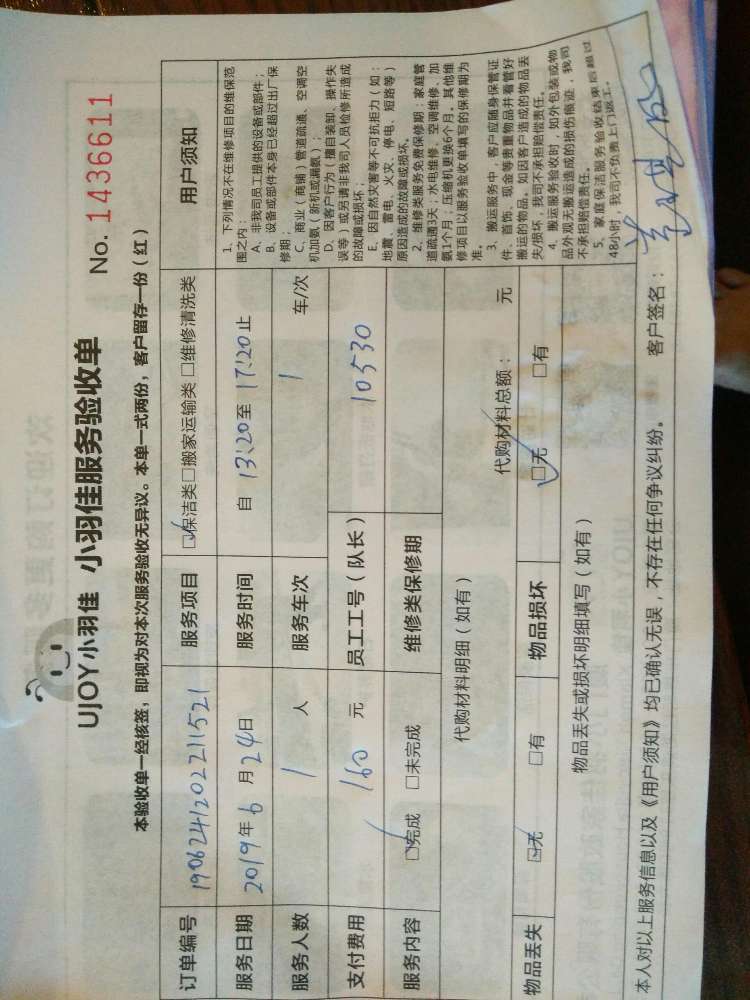 UJOY小羽佳 小羽佳服务验收单 No. 1436611
本验收单一经核签，即视为对本次服务验收无异议。本单一式两份，客户留存一份（红）
订单编号 1906241202211521 服务项目 保洁类□搬家运输类□维修清洗类 用户须知
服务日期 2019年6月24日 服务时间 自13:20至17:20止
服务人数 1 人 服务车次 1 车/次
支付费用 160 元 员工工号（队长） 10530
服务内容 ☑完成 □未完成 维修类保修期
代购材料明细（如有） 代购材料总额： 元
物品丢失 ☑无 □有 物品损坏 ☑无 □有
物品丢失或损坏明细填写（如有）
1、下列情况不在维修项目的维保范
围之内：
A、非我司员工提供的设备或部件；
B、设备或部件本身已经超过出厂保
修期；
C、商业（商铺）管道疏通、空调空
机加氨（新机或漏氨）；
D、因客户行为（擅自装卸、操作失
误等）或另请非我司人员检修所造成
的故障或损坏；
E、因自然灾害等不可抗拒力（如：
地震、雷电、火灾、停电、短路等）
原因造成的故障或损坏。
2、维修类服务免费保修期：家庭管
道疏通3天；水电维修、空调维修、加
氨1个月；压缩机更换6个月。其他维
修项目以服务验收单填写的保修期为
准。
3、搬运服务中，客户应随身保管证
件、首饰、现金等贵重物品并看管好
搬运的物品。如因客户造成的物品丢
失/损坏，我司不承担赔偿责任。
4、搬运服务验收时，如外包装或物
品外观无搬运造成的损伤痕迹，我司
不承担赔偿责任。
5、家庭保洁服务验收结束后超过
48小时，我司不负责上门返工。
本人对以上服务信息以及《用户须知》均已确认无误，不存在任何争议纠纷。 客户签名：